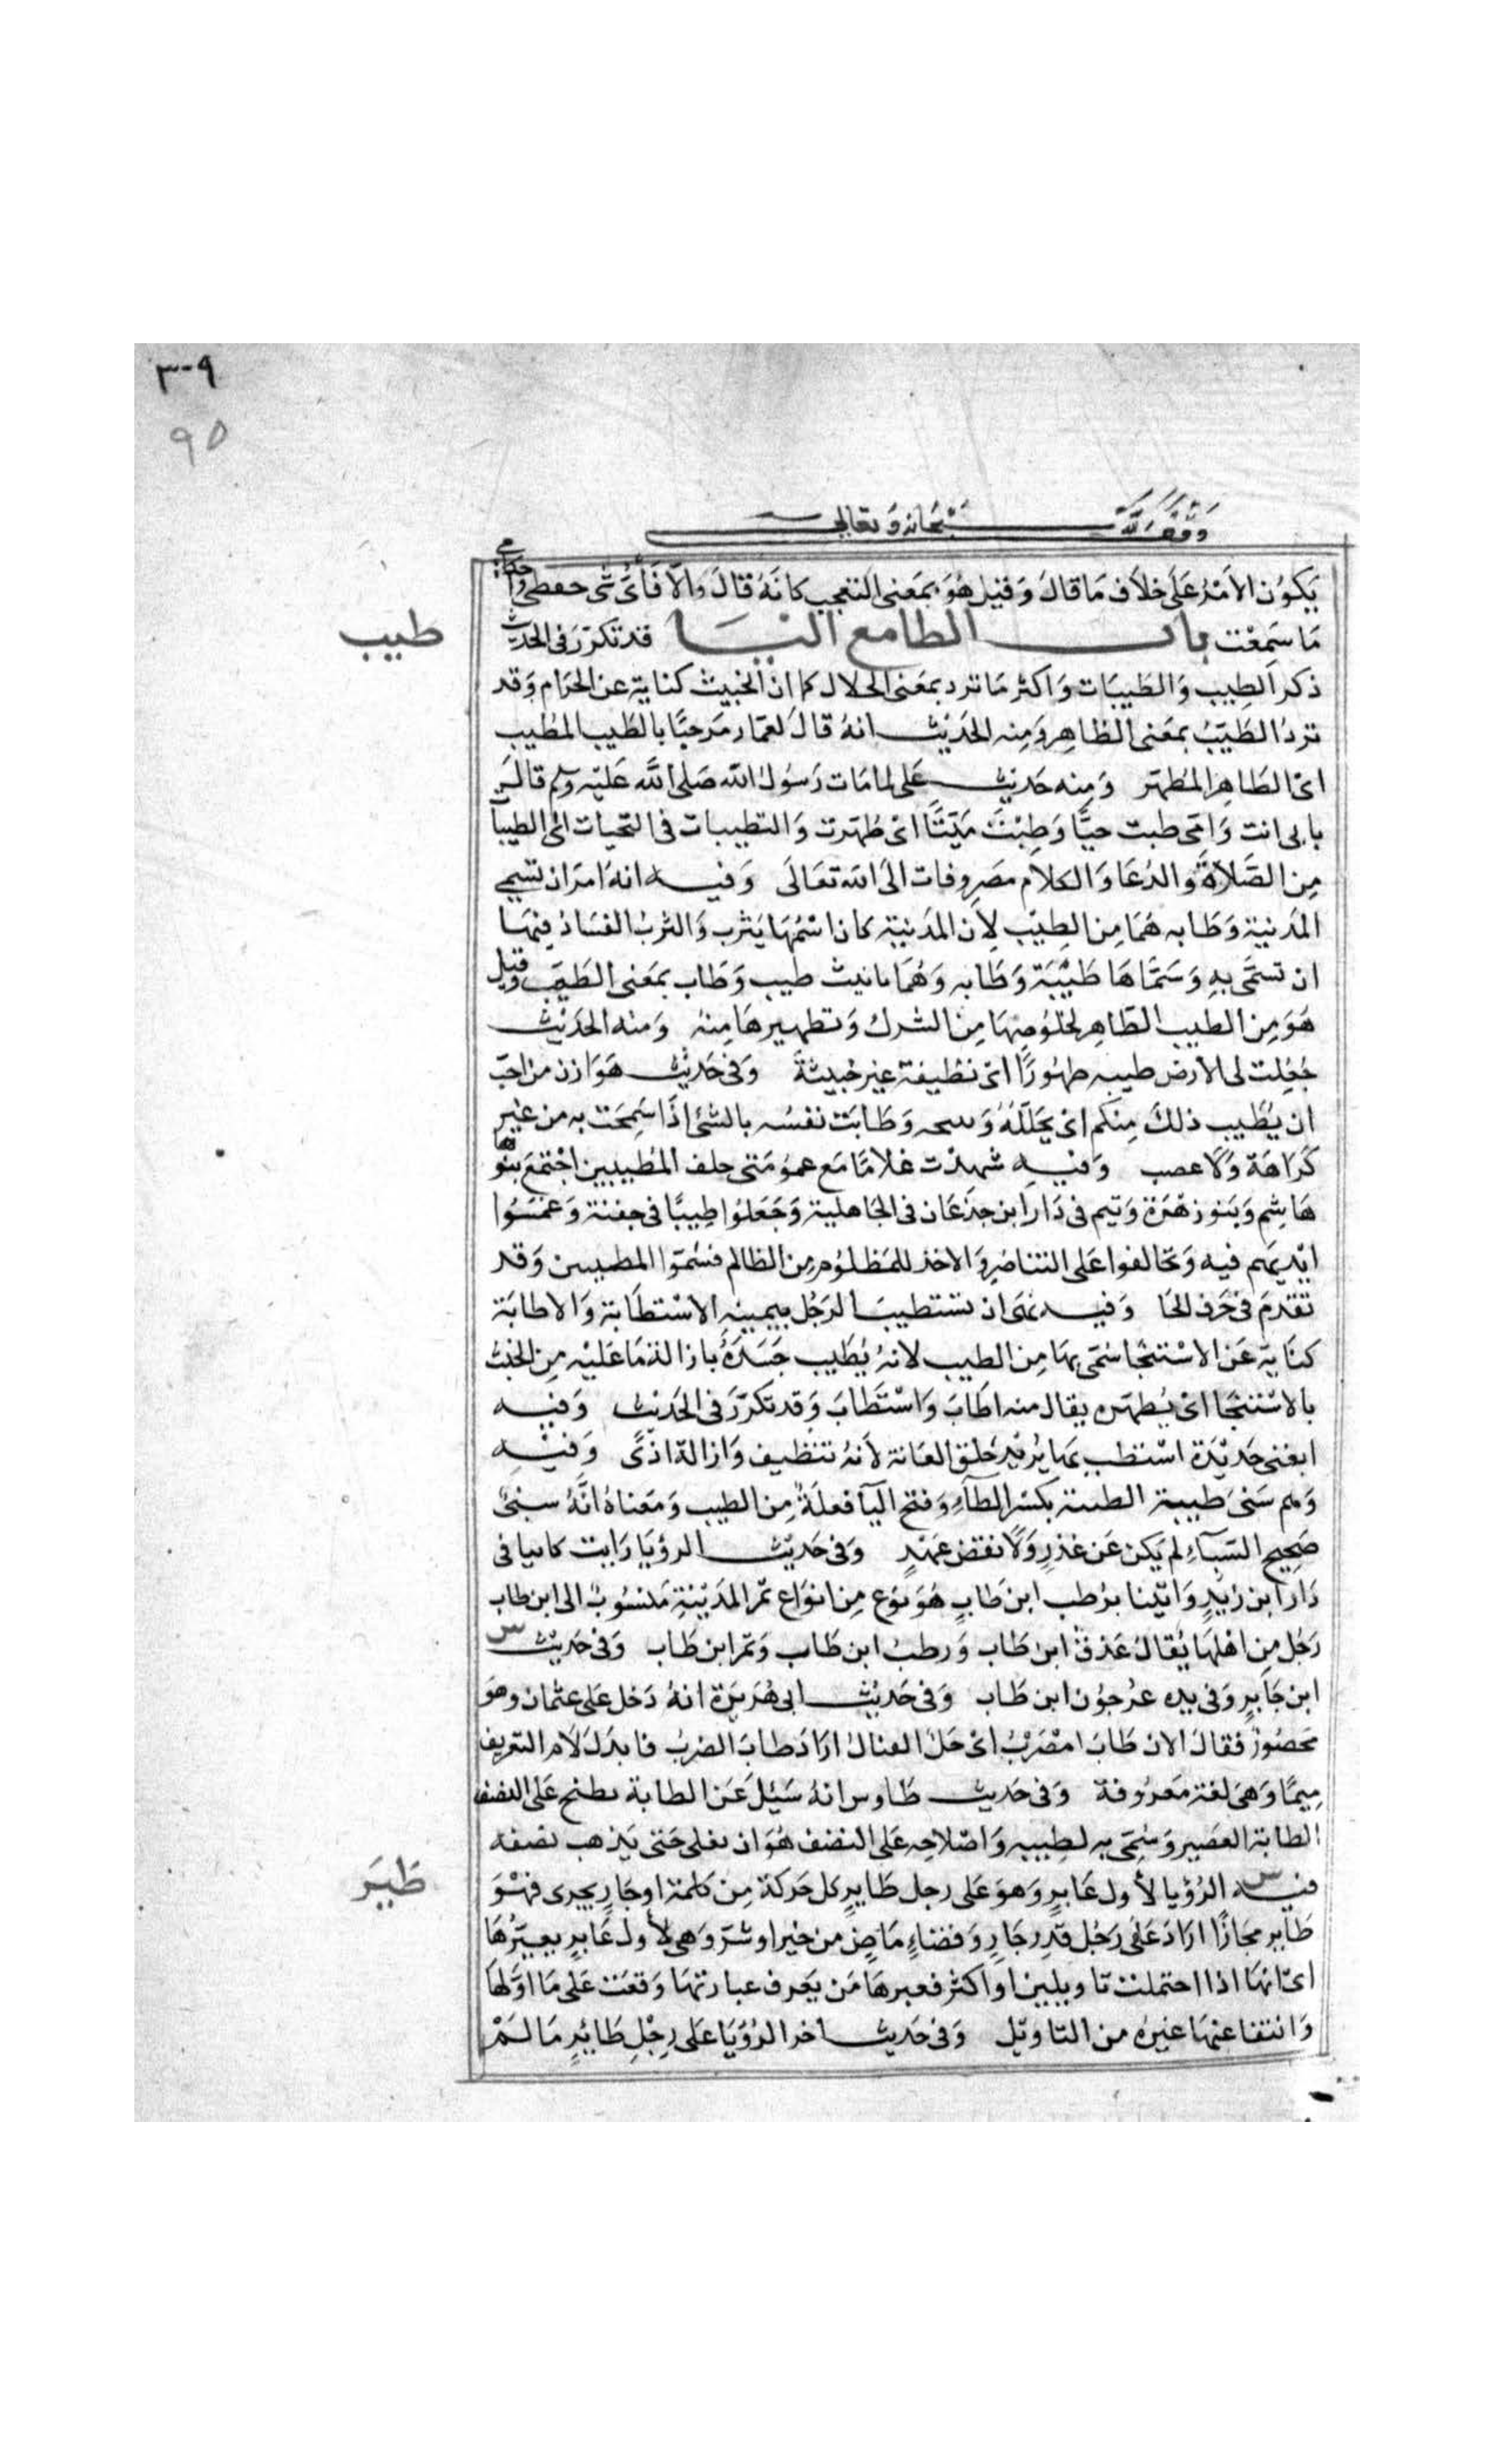 ٣٠٩
٩٥
وقف لله سبحانه وتعالى
يَكوُن الأمْرُ عَلَى خلاَف مَا قالَ وَقيل هُوَ بمَعنى التعجب كانَهُ قالَ وَالاّ فَأىَّ شى حفظى وَاحكامى
مَا سَمِعْت باب الطا مع اليَا قد تكرّرَ فى الحديث
طيب
ذكر الطِيب وَالطَيبَات وَاكثر مَا ترد بمعَنى الحلال كما ان الخبيث كناية عن الحرَام وَقد
تردُ الطَيّبُ بمعَنى الطاهِر وَمِنه الحَديْث انهُ قالَ لعمّار مَرحبًا بالطَيب المطيب
اىْ الطَاهِر المطهّر وَمِنه حَديث عَلى لما مَات رَسُولُ الله صَلى اللَّه عَليْه وسلم قالَ
بابى انت وَامّى طبت حيًّا وَطِبْتَ مَيّتًا اىْ طهَرت وَالتطيبات فى التحيات اىْ الطيبآ
مِن الصَّلاَةِ وَالدُعَا وَالكلاَم مَصرِوفات الىَ الله تعَالَى وَفيه انهُ امَرَ ان تسمى
المَدينَة وَطَابه هُمَا مِن الطِيْب لِأن المَدينَة كان اسْمُهَا يَثرب وَالثربُ الفسَادُ فنهَا
ان تسمَّى بهِ وَسَمَّاهَا طَيْبَة وَطَابه وَهُمَا تانيث طيب وَطَاب بمَعنى الطَيبَ وقيل
هَوَ مِن الطيب الطّاهِر لخلوُصِهَا مِنَ الشرك وَتطهيرهَا مِنهُ وَمنه الحَديْث
جُعِلت لى الأرض طيبه طهُورًا اىْ نظيفة غير خبيثةَ وَفى حَديْث هَوَازن من احَبّ
ان يُطَيب ذلكَ مِنكم اىْ يحَللَهُ وَ وَطَابَت نفسُه بالشئ اذَا سَمِحَت به من غير
كرَاهَة وَلا غصب وَفيه شهدْت غلامًا مَع عمُومَتى حلف المُطيبيين اجْتمَعَ بنوُ
هَاشِم وَبَنو زهْرَة وَتيم فى دَار ابن جدْعَان فى الجَاهلية وَجَعَلوُا طِيبًا فى جفنة وَغمسُوا
ايْديهَم فيه وَتحَالفوا عَلى التناصُرِ وَالاخذ للمَظلوُم مِن الظالم فسُمّوا المطيبين وَقد
تقَدمَ فى حَرف الحَا وَفيه نهَى ان تستطيبَ الرَجُل بيمينهِ الاسْتطَابَة وَالاطابَة
كنَاية عَن الاسْتنجَا سُمّى بهَا مِن الطيب لانهُ يُطَيب جَسَدَهُ باِزالة مَا عَليْه مِن الخبث
بالاسْتنجَا اىْ يُطهّرهَ يقال منه اطَابَ وَاسْتطَابَ وَقد تكرّرَ فى الحَديْث وَفيه
ابغنى حَديْدَة اسْتطب بهَا يُريْد حَلق العَانة لأنهُ تنظيف وَازالة اذىً وَفيْه
وَهم سَبىَ طيبة الطيبة بكسْر الطآءِ وَفتح اليآ فعلَةَُ مِن الطيب وَمعَناهُ انَّهُ سَبىُ
صَحِيح السّبآءِ لم يَكن عَن غدَرٍ وَلاَ نقض عهَدٍ وَفى حَديْث الرؤيَا رَايت كانيا فى
دَار ابن زيْدٍ وَاتيْنا برُطب ابن طَابٍ هُوَ نوَع مِن انوَاع تمْر المَديْنةِ مَنسُوبُ الى ابن طاب
رَجُل مِن اهْلهَا يُقالُ عَذقُ ابن طَاب وَرطبُ ابن طَاب وَتمر ابن طَاب وَفى حَديْث س
ابن جَابرٍ وَفى يده عرُجوُن ابن طَاب وَفى حَديْث ابى هُرَيرَة انهُ دَخل عَلى عثمان وهو
محصُورُ فقالَ الان طَابَ امْضَرْبُ اىْ حَلَّ القتالُ ارَادَ طابَ الضربُ فابدَلَ لاَم التعريف
مِيمًا وَهىَ لغة مَعرُوفة وَفى حَديث طَاوس انهُ سَئِلَ عَن الطابة تطبخ عَلى النصف
الطابَة العَصِير وَسُمّى به لطِيبه وَاصْلاحِه عَلى النصف هُوَ ان تغلى حَتى يَذهب نصفه
طَيَرَ
فيه س الرُؤيا لأول عَابِرٍ وَهوَ عَلى رجل طَايرٍ كل حَركة مِن كلمة اوجَارٍ يجرى فهْوَ
طَاير مجَازًا ارَادَ عَلى رَجُل قدَر جَارٍ وَقضاءٍ مَاضٍ من خيْر اوشرّ وَهى لأول عَابرٍ يعبّرُهَا
اىْ انهَا اذا احتملت تاويلين اوْ اكثر فعبرهَا مَن يَعرف عبارتهَا وَقعَت عَلى مَا اوّلهَا
وَانتفا عنهَا غيرُه من التاويْل وَفى حَديث اخر الرُؤيَا عَلى رجْلِ طَائرٍ مَا لَمْ